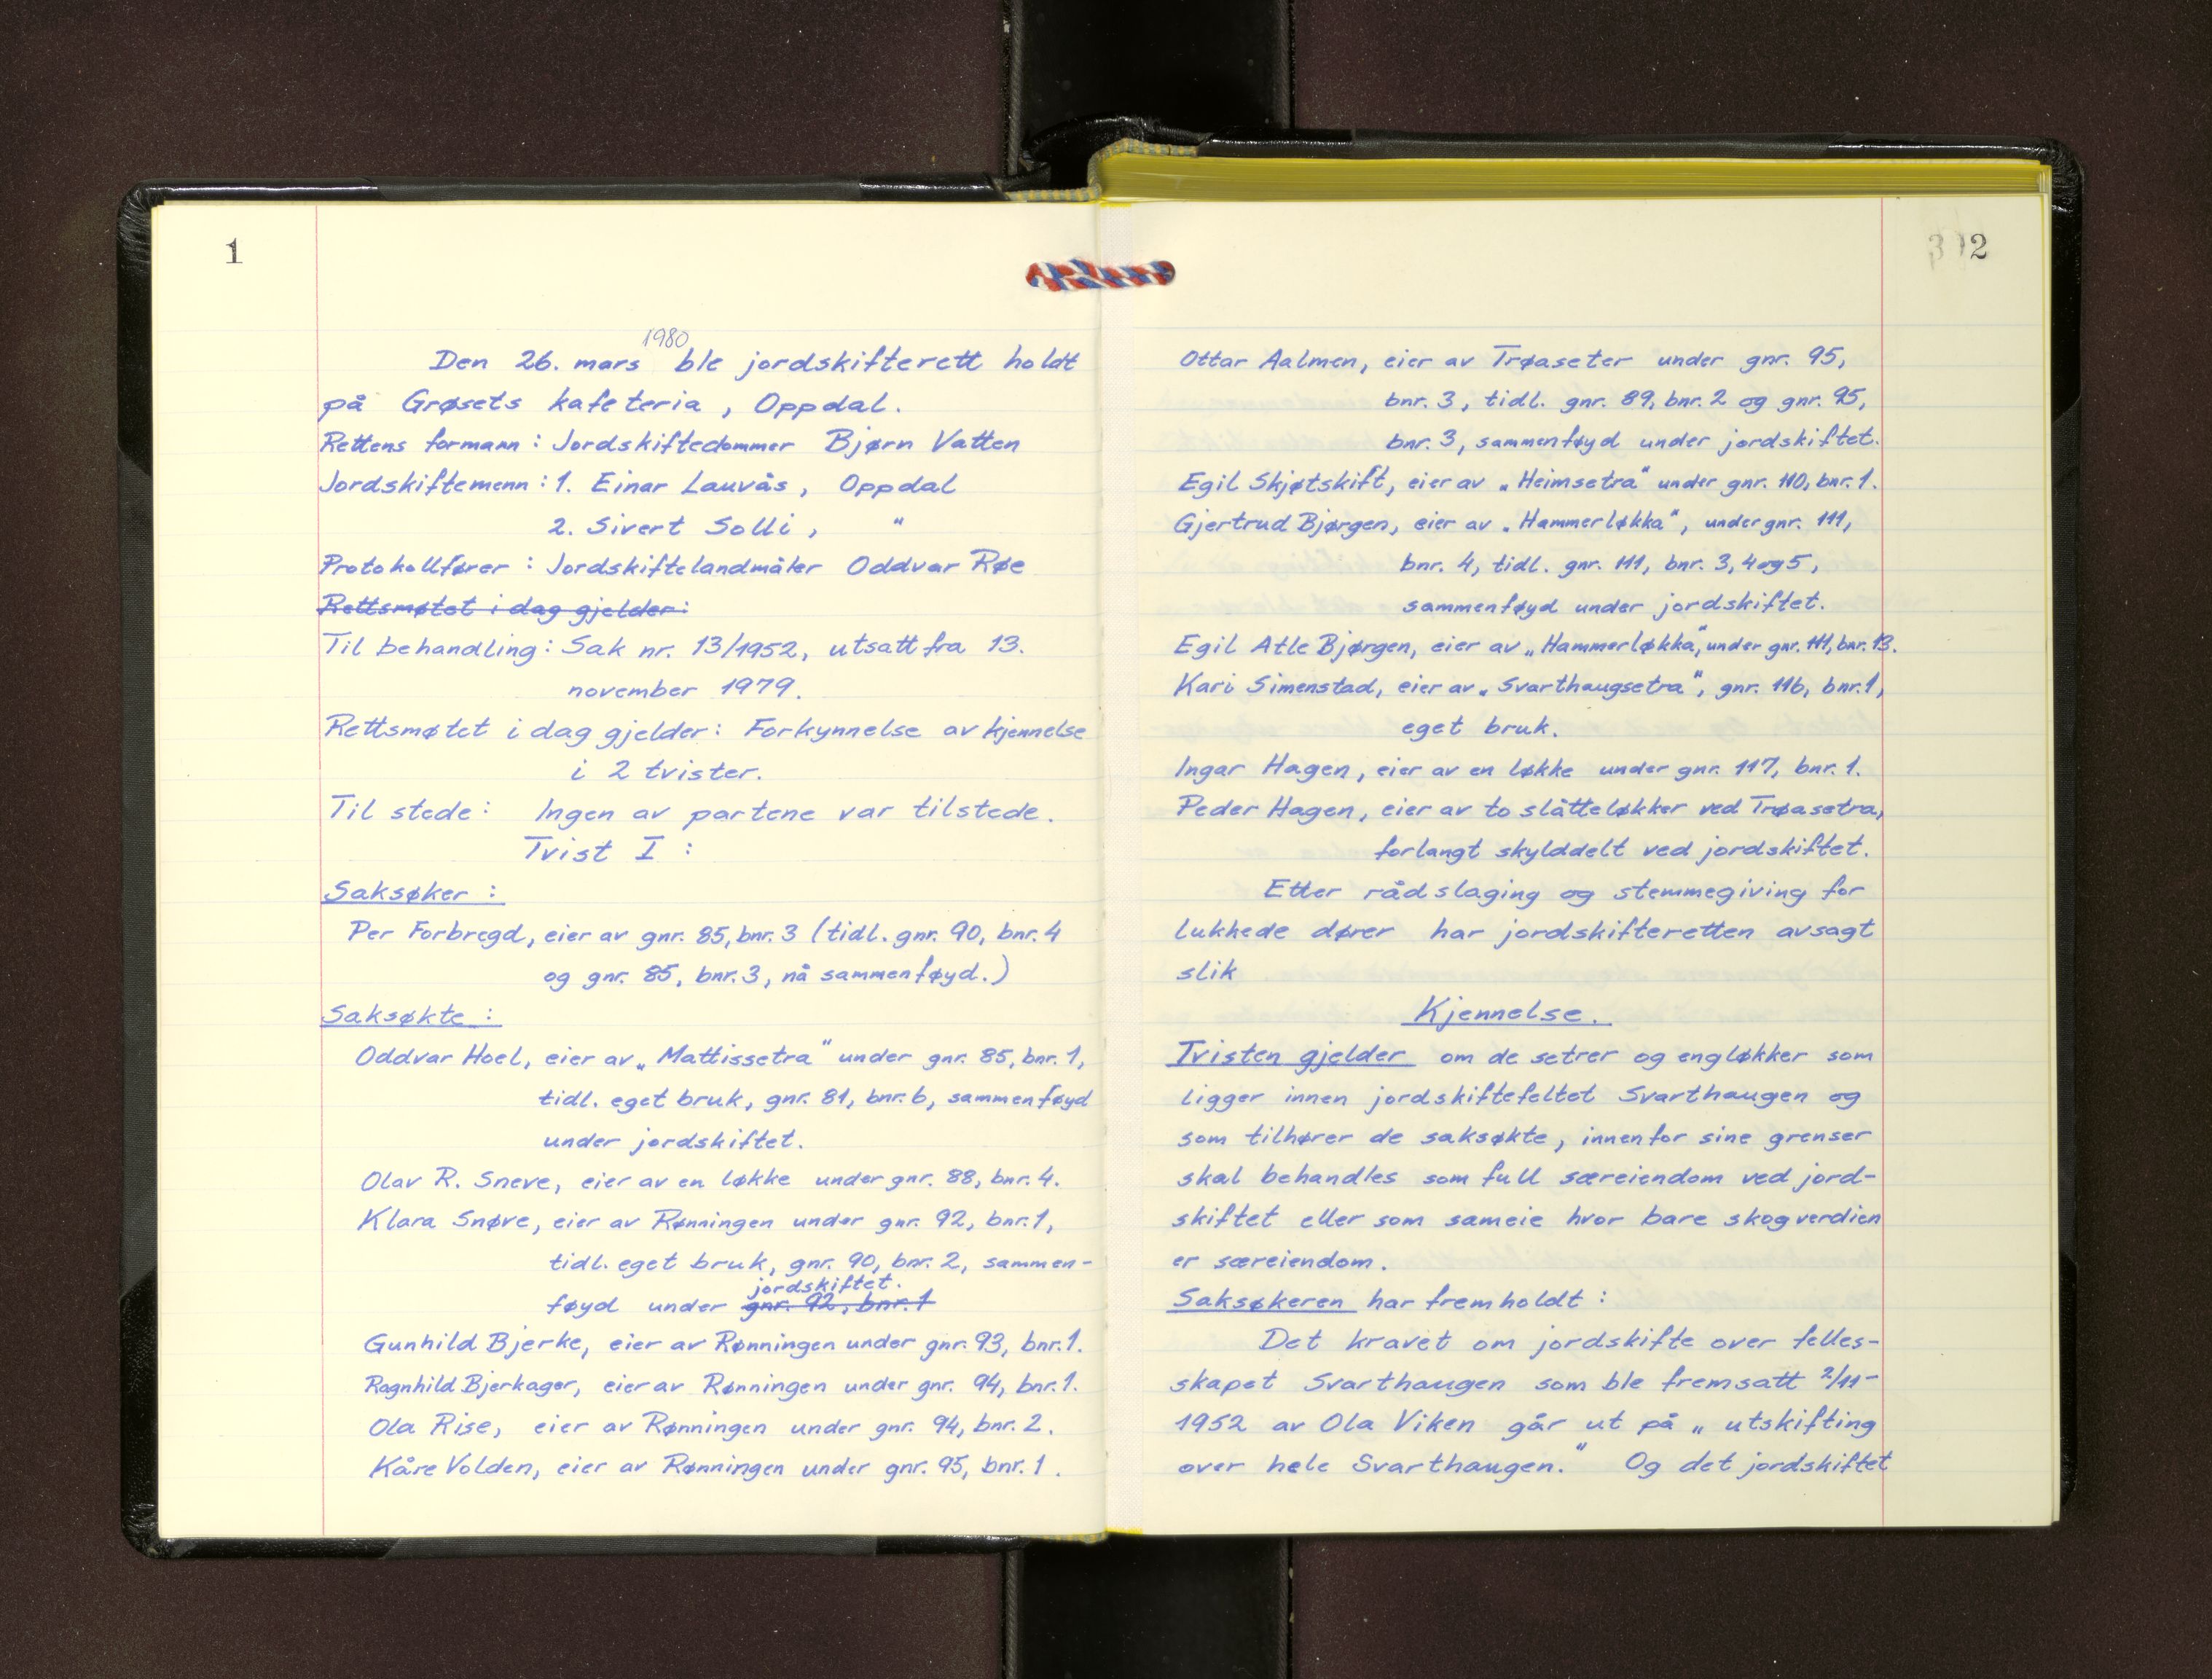 1
1980
Den 26. mars ble jordskifterett holdt
på Grøsets kafeteria, Oppdal.
Rettens formann: Jordskiftedommer Bjørn Vatten
Jordskiftemenn: 1. Einar Lauvås, Oppdal
2. Sivert Solli, "
Protokollfører: Jordskiftelandmåler Oddvar Røe
Rettsmøtet i dag gjelder:
Til behandling: Sak nr. 13/1952, utsatt fra 13.
november 1979.
Rettsmøtet i dag gjelder: Forkynnelse av kjennelse
i 2 tvister.
Til stede: Ingen av partene var tilstede.
Tvist I:
Saksøker:
Per Forbregd, eier av gnr. 85, bnr. 3 (tidl. gnr. 90, bnr. 4
og gnr. 85, bnr. 3, nå sammenføyd.)
Saksøkte:
Oddvar Hoel, eier av „Mattissetra" under gnr. 85, bnr. 1,
tidl. eget bruk, gnr. 81, bnr. 6, sammenføyd
under jordskiftet.
Olav R. Sneve, eier av en løkke under gnr. 88, bnr. 4.
Klara Snøve, eier av Rønningen under gnr. 92, bnr. 1,
tidl. eget bruk, gnr. 90, bnr. 2, sammen-
jordskiftet.
føyd under gnr. 92, bnr. 1
Gunhild Bjerke, eier av Rønningen under gnr. 93, bnr. 1.
Ragnhild Bjerkager, eier av Rønningen under gnr. 94, bnr. 1.
Ola Rise, eier av Rønningen under gnr. 94, bnr. 2.
Kåre Volden, eier av Rønningen under gnr. 95, bnr. 1.
2
Ottar Aalmen, eier av Trøaseter under gnr. 95,
bnr. 3, tidl. gnr. 89, bnr. 2 og gnr. 95,
bnr. 3, sammenføyd under jordskiftet.
Egil Skjøtskift, eier av „Heimsetra" under gnr. 110, bnr. 1.
Gjertrud Bjørgen, eier av „Hammerløkka", under gnr. 111,
bnr. 4, tidl. gnr. 111, bnr. 3, 4 og 5,
sammenføyd under jordskiftet.
Egil Atle Bjørgen, eier av „Hammerløkka", under gnr. 111, bnr. 13.
Kari Simenstad, eier av „Svarthaugsetra", gnr. 116, bnr. 1,
eget bruk.
Ingar Hagen, eier av en løkke under gnr. 117, bnr. 1.
Peder Hagen, eier av to slåtteløkker ved Trøasetra,
forlangt skylddelt ved jordskiftet.
Etter rådslaging og stemmegiving for
lukkede dører har jordskifteretten avsagt
slik
Kjennelse.
Tvisten gjelder om de setrer og engløkker som
ligger innen jordskiftefeltet Svarthaugen og
som tilhører de saksøkte, innenfor sine grenser
skal behandles som full særeiendom ved jord-
skiftet eller som sameie hvor bare skogverdien
er særeiendom.
Saksøkeren har fremholdt:
Det kravet om jordskifte over felles-
skapet Svarthaugen som ble fremsatt 2/11-
1952 av Ola Viken går ut på „utskifting
over hele Svarthaugen." Og det jordskiftet